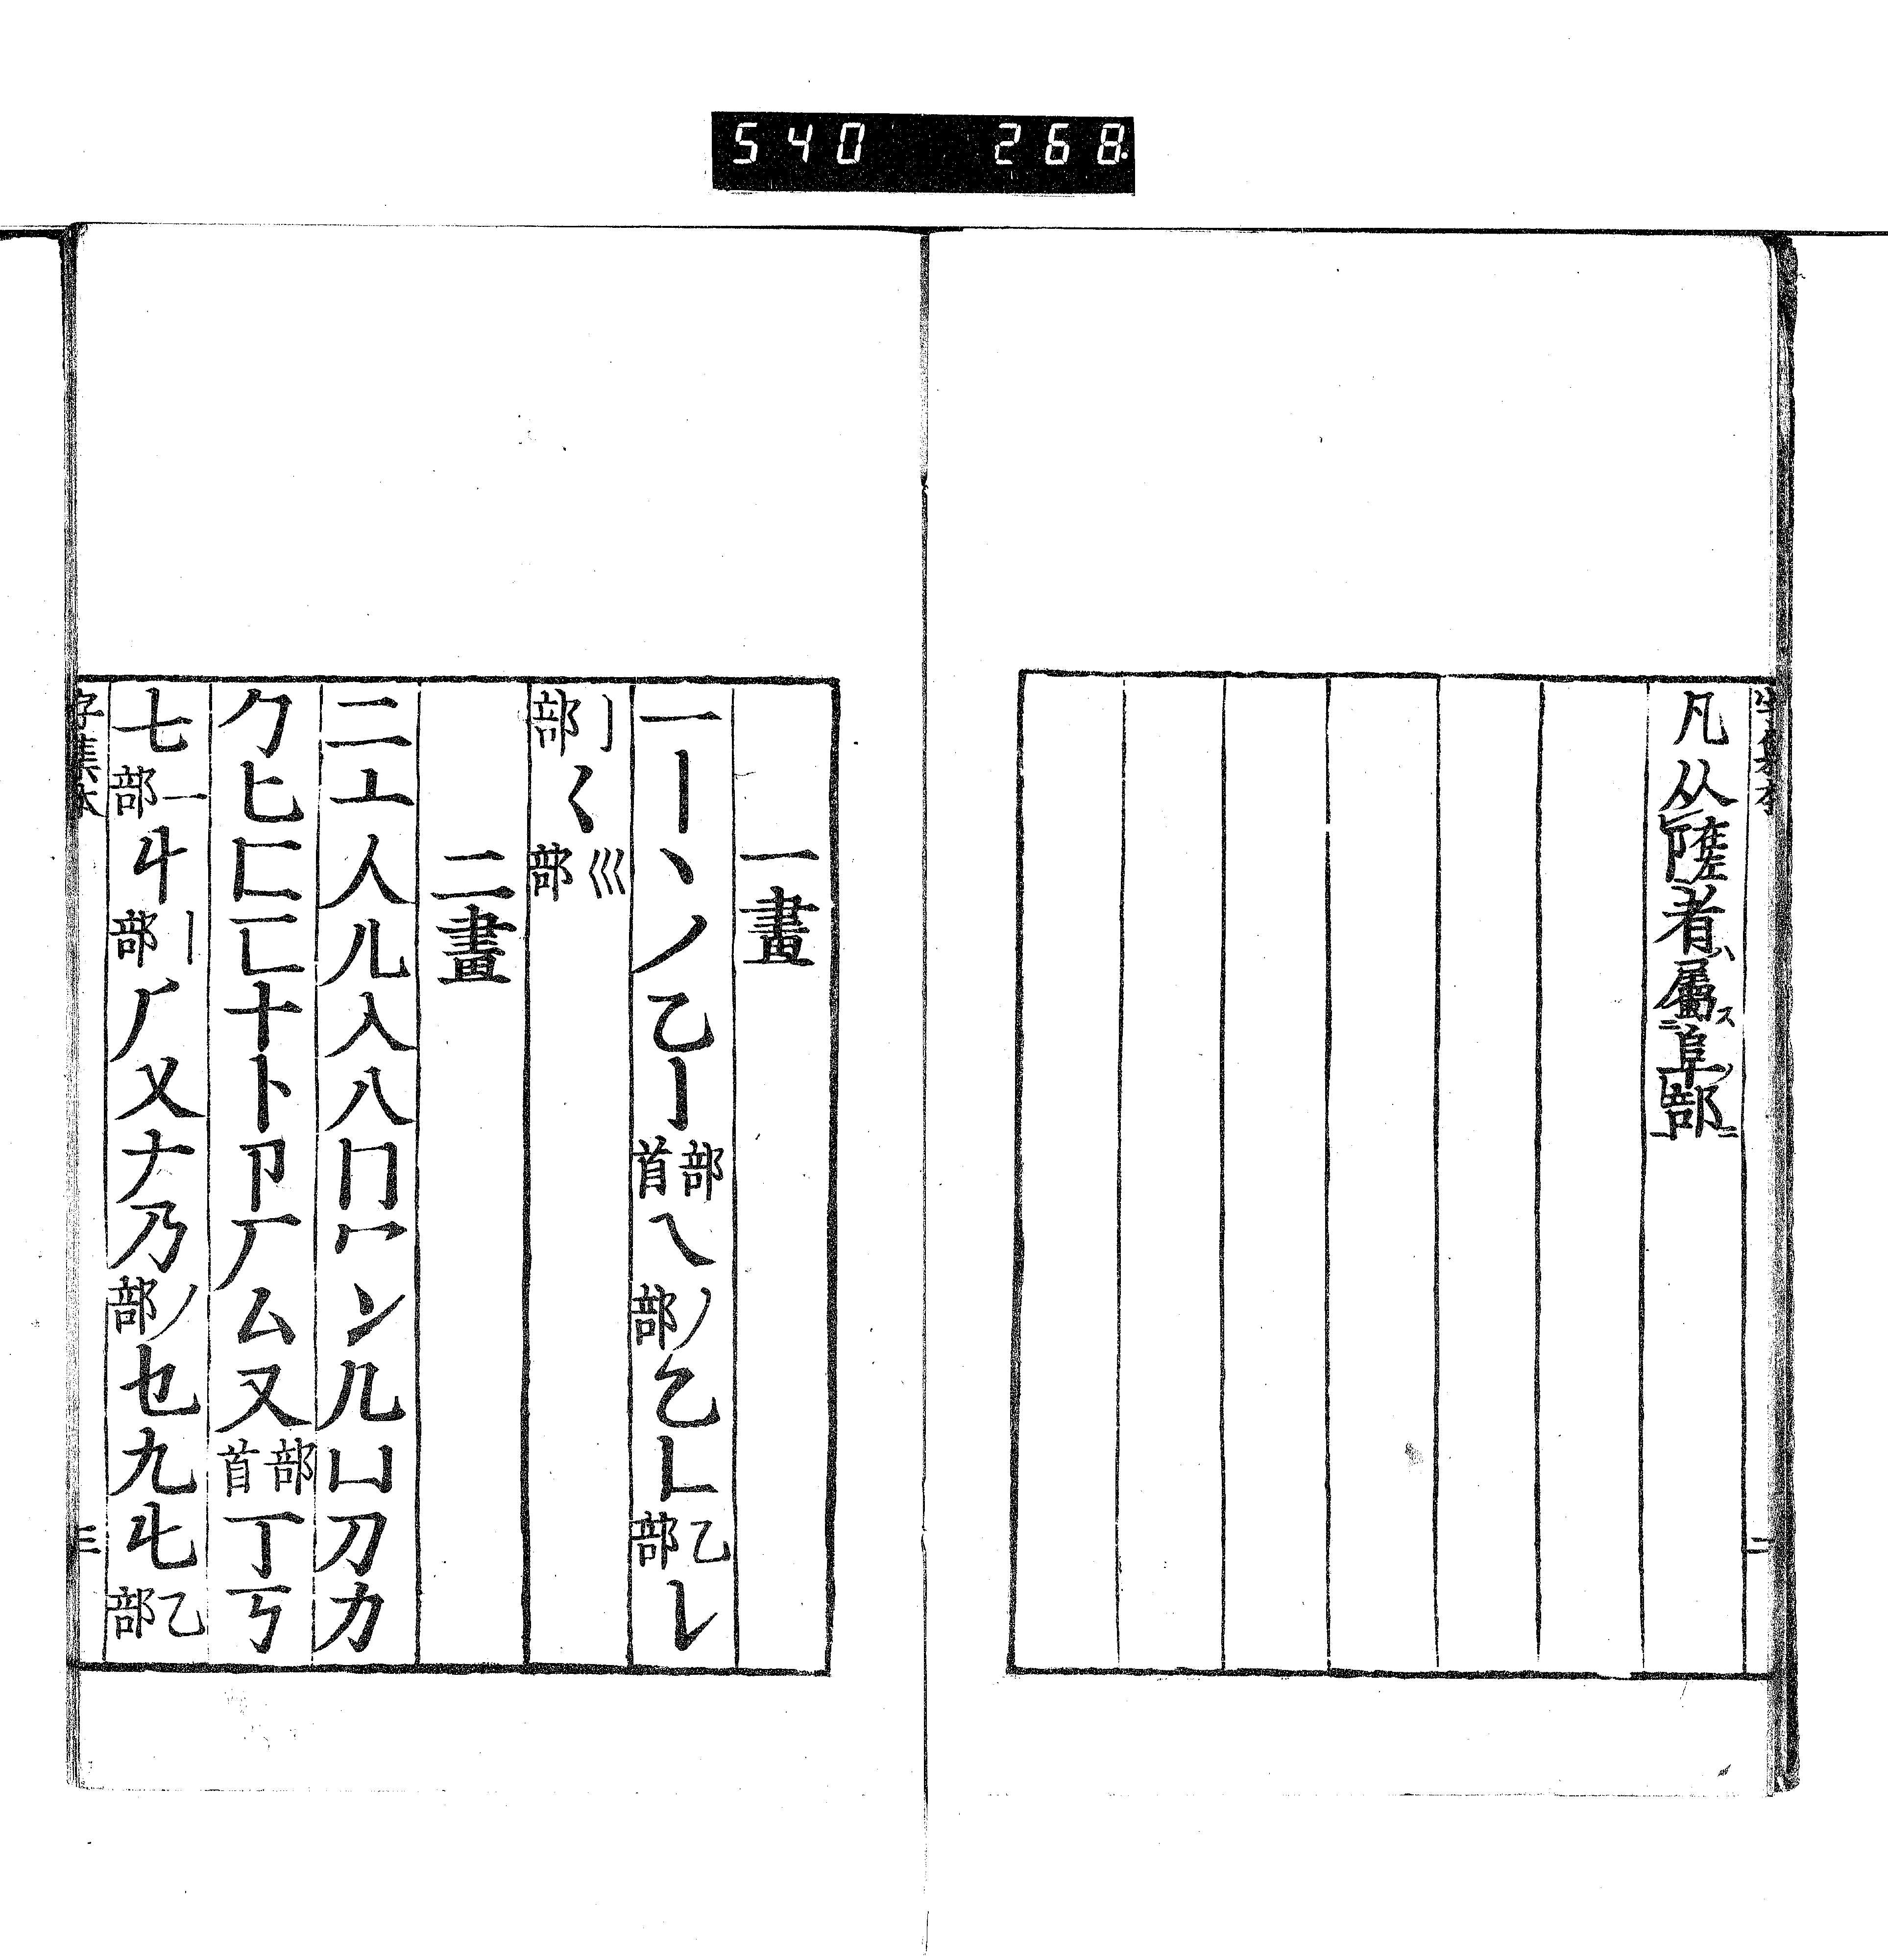 540 268
凡从𨻰者ハ屬ス阜ノ部ニ
一畫
一丨丶丿乙亅部首乀丿部乞乚乙部レ
亅部く巛部
二畫
二亠人儿入八冂冖冫几凵刀力
勹匕匚匸十卜卩厂厶又部首丁丂
七一部丩丨部𠂆乂𠂇乃丿部乜九乙部
字集本 三